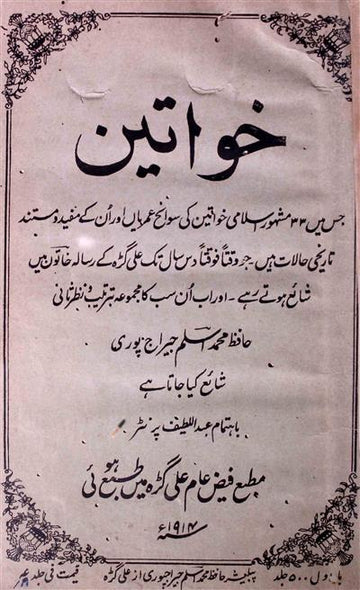 خواتین
جس میں ۳۳ مشہور اسلامی خواتین کی سوانح عمریاں اور اُن کے مفید و مستند
تاریخی حالات ہیں۔ جو وقتاً فوقتاً دس سال تک علی گڑھ کے رسالہ خاتون میں
شائع ہوتے رہے۔ اور اب اُن سب کا مجموعہ بترتیب و نظر ثانی
حافظ محمد اسلم جیراج پوری
شائع کیا جاتا ہے
باہتمام عبداللطیف پرنٹر
مطبع فیض عام علی گڑھ میں طبع ہوئی
سنہ ۱۹۱۴ء
بار اول ۵۰۰ جلد پبلیشر حافظ محمد اسلم جیراجپوری از علی گڑھ قیمت فی جلد